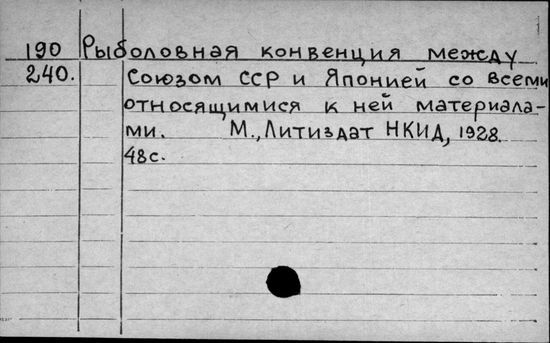 190 Рыболовная конвенция между
240. Союзом ССР и Японией со всеми
относящимися к ней материала-
ми. М., Литиздат НКИД, 1928.
48с.